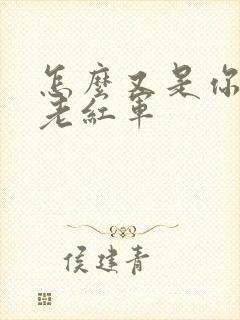 怎麼又是你
老紅軍
侯建青